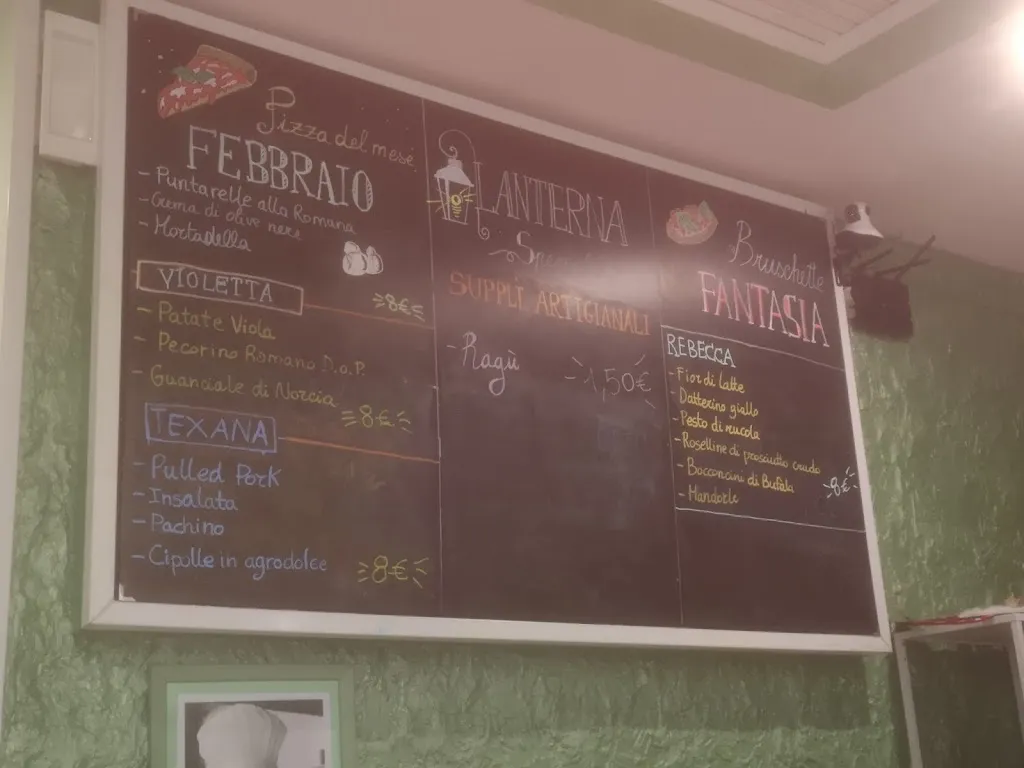 Pizza del mese
FEBBRAIO
- Puntarelle alla Romana
- Crema di olive nere
- Mortadella
8€
VIOLETTA
- Patate Viola
- Pecorino Romano D.o.P.
- Guanciale di Norcia
8€
TEXANA
- Pulled Pork
- Insalata
- Pachino
- Cipolle in agrodolce
8€
LANTERNA
SUPPLÌ ARTIGIANALI
- Ragù
1,50€
Bruschette
FANTASIA
REBECCA
- Fior di latte
- Datterino giallo
- Pesto di rucola
- Roselline di prosciutto crudo
- Bocconcini di Bufala
- Mandorle
8€